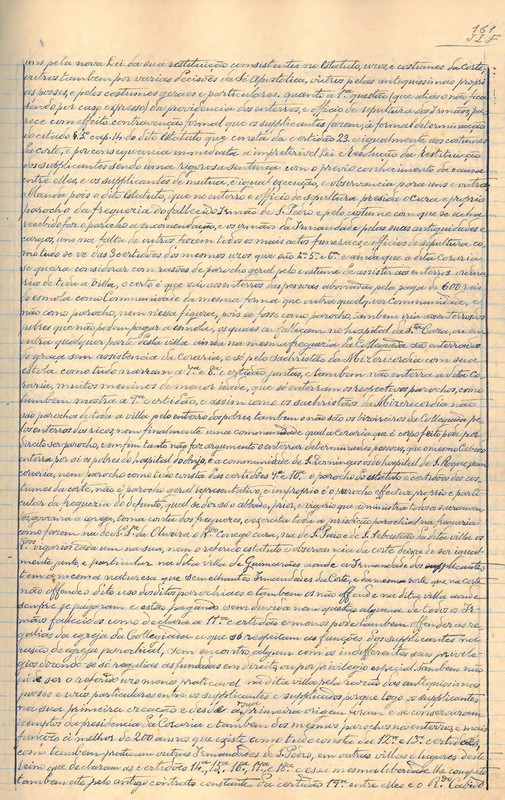 161
uns pela nova Lei da sua restituição consistentes no Estatuto, uzos, e costumes da Corte,
outros tambem por varias decisões da Sé Apostolica, outros pelas antiquissimas propri
as posses, e pelos costumes geraes e particulares. quanto á 1ª questão (que aliás o não fica
sendo por caso expresso) da providencia dos enterros, e officio de sepultura dos Irmãos, pa
rece com effeito contravenção formal que os supplicantes fazem, á formal determinação
do citado § 3º cap. 14 do dito Estatuto que consta da certidão 23. e igualmente aos costumes
da corte, e por consequencia immediata a impreterivel Lei e Resolução da Restituição
dos supplicantes sendo uma rigorosa sentença com o previo conhecimento da causa
entre elles, e os supplicantes de mutua, e igual execução, e observancia para uns e outros
Manda pois o dito Estatuto, que no enterro e officio de sepultura presida o cura e proprio
parocho da freguezia do fallecido Irmão de S. Pedro e pelo costume com que se acha
recebido fôr o parocho a encomendação, e os irmãos da Irmandade pelas suas antiguidades e
cargos, uns na falta de outros fazem todos os mais actos funeraes, e officios de sepultura co
mo tudo se vê das 3 certidões dos mesmos uzos que são
se queira considerar com rasões de parocho geral pelo costume de assistir aos enterros ordina
rios de toda a villa, o certo é que vai aos enterros das pessoas abonadas, pela paga de 600 reis
de esmola como Communidade da mesma forma que outra qualquer Communidade, e
não como parocho, nem nessa figura, pois se fosse como parocho, tambem iria aos enterros dos
pobres que não podem pagar a esmola, os quaes ou falleçam no hospital da Sta Caza, ou em
outra qualquer parte desta villa ainda na mesma freguezia da Collegiada são enterrados
de graça sem assistencia da Coraria, e só pelo sachristão da Misericordia com sua
estola como tudo narram a e 6ª certidão juntas, e tambem não enterra a dita Co
raria, muitos meninos de menor idade, que só enterram os respectivos parochos, como
tambem mostra a 7ª certidão, e assim como os sachristães da Mizericordia não
são parochos de toda a villa, pelo enterro dos pobres tambem o não são os da Collegiada pe
los enterros dos ricos, nem finalmente uma communidade qual a Coraria que é corpo
ser parocho, e em fim tanto não for argumento o enterrar determinadas pessoas, que o mesmo
enterra por si os pobres do hospital do Anjo, e a communidade de S. Domingos os do hospital de S. Roque sem
coraria, nem parocho como tudo consta das certidões 9ª e 10ª e parocho do estatuto e certidões dos cos
tumes da corte, não é parocho geral representativo, e improprio é o parocho effectivo proprio e parti
cular da freguezia do defunto, qual se diz só o abbade, prior, e vigario que administra todos os sacramen
tos, governa a igreja, toma contas dos freguezes, e exercita toda a jurisdição parochial na freguezia
como fazem na de N. Sª da Oliveira o Rdo Conego cura, na de S. Paio e de S. Sebastião da dita villa os
vigarios cada um na sua, nem o referido estatuto e observancia da corte deixa de ser igual-
mente justo, e particular na dita villa de Guimarães aonde a Irmandade dos supplicantes
tem a mesma natureza que semelhantes Irmandades da Corte, e da mesma sorte que na corte
não offende o dito uso direitos parochiaes e tambem os não offende na dita villa aonde
sempre se pagaram e estão pagando sem duvida nem questão alguma de todos os Ir-
mãos fallecidos como declara a 11ª certidão e menos pode tambem offender as re
galias da egreja da Collegiada a que só respeitam as funcções dos supplicantes na
rasão de egreja parochial, sem encontro algum com os indifferentes seus privile-
gios dando-se só regalias as fundadas em direito, ou por privilegio especial. tambem não
deixe de ser o referido uso menos praticavel na dita villa pela razão das antiquissimas
posses e uzos particulares entre os supplicantes e supplicados porque logo os supplicantes
na sua primeira creação e desde a sua primeira origem foram e se conservaram
exemptos da presidencia da Coraria e tambem dos mesmos parochos nos enterros, e mais
funções á melhor de 200 annos que existe como tudo consta da 12ª e 13ª certidões,
como tambem praticam outras Irmandades de S. Pedro, em outras villas e lugares deste
reino que declaram as certidões 14ª, 15ª, 16ª, 17ª e 18ª e essa mesma liberdade lhe compete
tambem até pelo antigo contracto constante da certidão 19ª entre elles e o Rdo Cabido